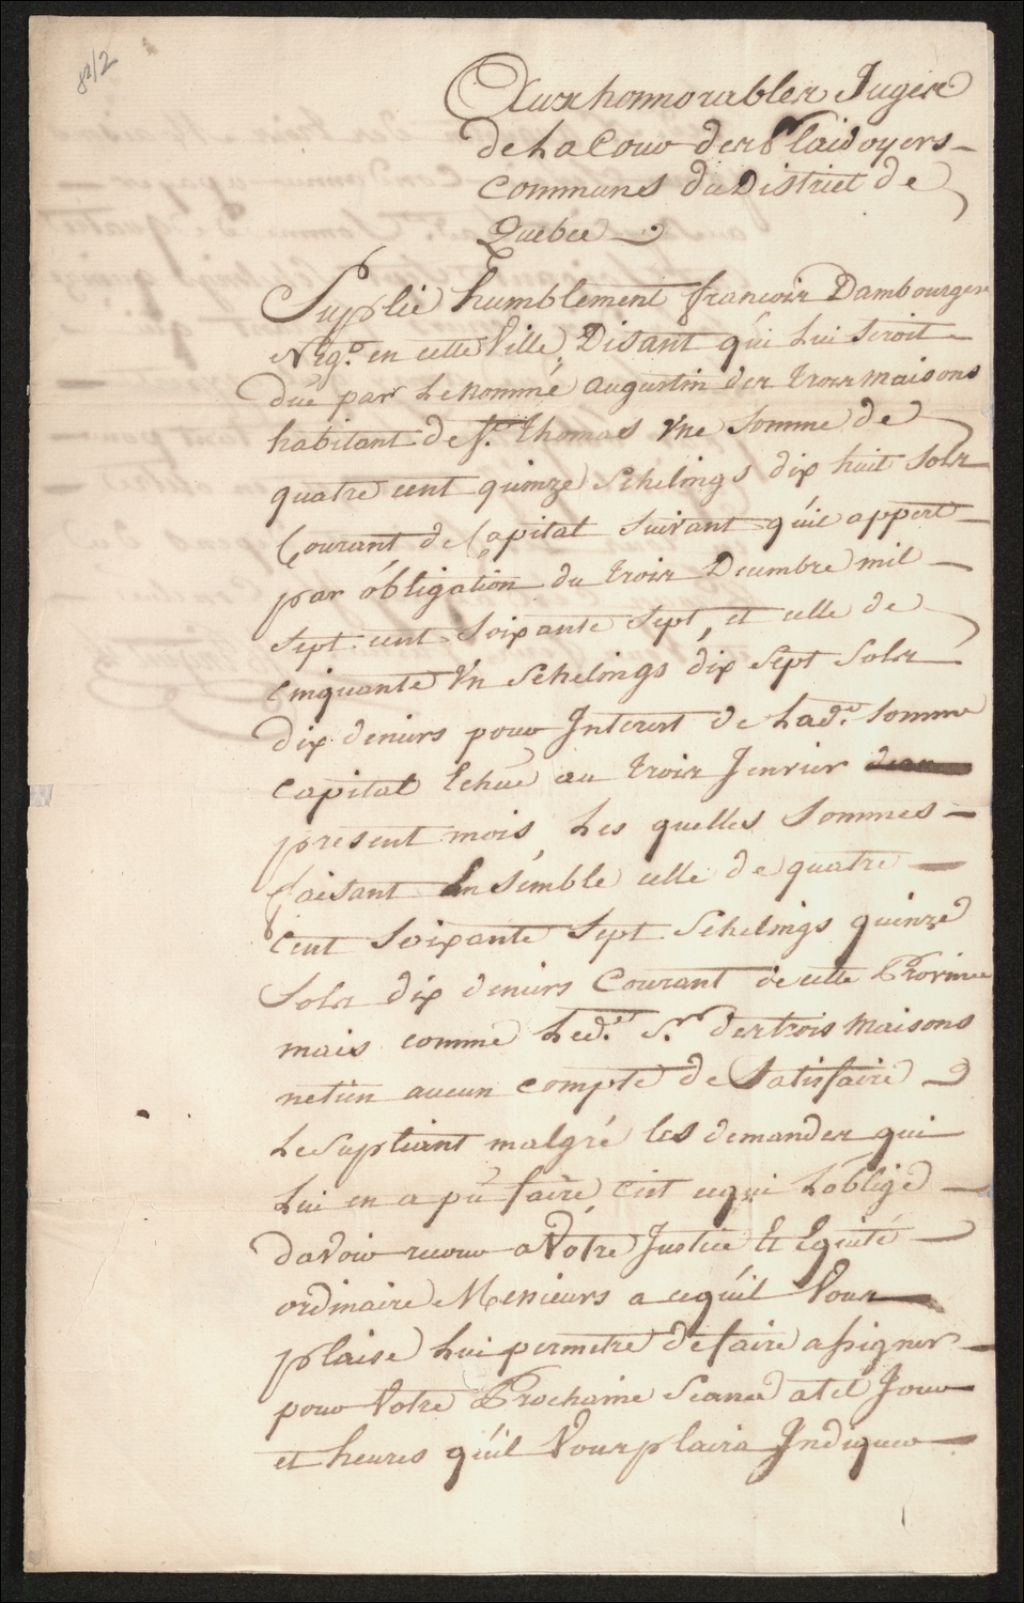 8
Aux honnorables Juges
de La Cour des Plaidoyers
communs du District de
Quebec
Suplie humblement francois Dambourges
Nég.t en cette Ville, Disant qúi Lui seroit
dúe par Le nommé augustin des trois maisons
habitant de S.t thomas Vne somme de
quatre cent quinze schelings dix huit sols
Courant de Capital suivant qúil appert
par óbligation du trois Decembre mil
sept cent soixante sept, et celle de
cinquante Vn schelings dix sept sols
dix deniers pour Interest de Lad.e somme
capital Echúe au trois Jenvier
present mois, Les quelles sommes
faisant Ensemble celle de quatre
Cent soixante sept schelings quinze
sols dix deniers Courant de cette Province
mais comme Led.t S.r des trois maisons
netien aucun compte de satisfaire
Le supliant malgré les demandes qui
Lui en a pú faire cest cequi Loblige
davoir recour a Votre Justice Et Equité
ordinaire Messieurs a ceqúil Vous
plaise Lui permetre de faire assigner
pour Votre Prochaine Seance a tel Jour
et heures qúil Vous plaira Indiquer